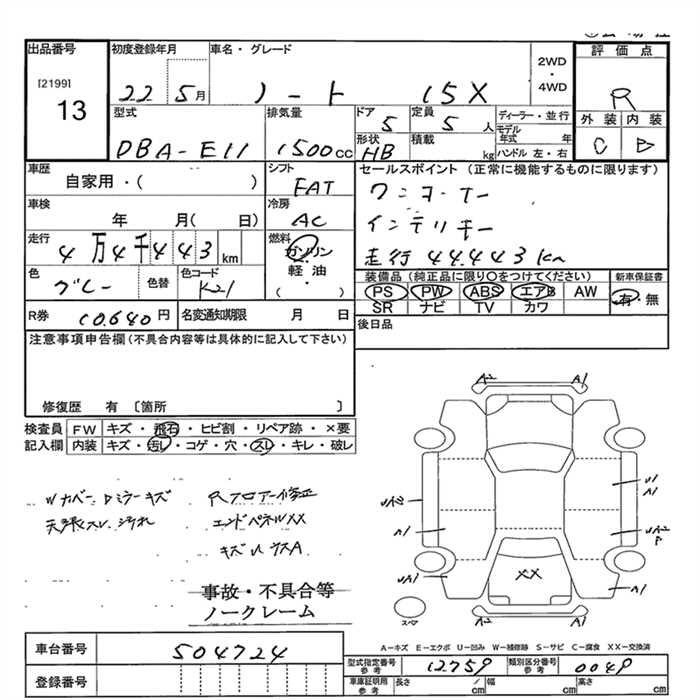 出品番号 初度登録年月 車名・グレード 2WD・4WD 評価点
[2199]
13 22 5月 ノート 15X R
型式 排気量 ドア 5 定員 5人 ディーラー・並行 外装 内装
DBA-E11 1500cc 形状 HB 積載 kg モデル年式 年 ハンドル 左・右 C D
車歴 シフト セールスポイント (正常に機能するものに限ります)
自家用・( ) FAT ワンオーナー
車検 冷房 インテリキー
年 月( 日) AC
走行 4万4千443km 燃料 ガソリン・軽油 ( ) 走行 44.443km
色 グレー 色替 色コード K21 装備品(純正品に限り○をつけてください) 新車保証書
PS PW ABS エアB AW 有・無
SR ナビ TV カワ
R券 10.640円 名変通知期限 月 日 後日品
注意事項申告欄(不具合内容等は具体的に記入して下さい)
修復歴 有 〔箇所 〕
検査員 FW キズ・飛石・ヒビ割・リペア跡・×要
記入欄 内装 キズ・汚レ・コゲ・穴・スレ・キレ・破レ
A2 A1
Wカバー、Dミラーキズ Rフロアー修正
天張スレ、汚れ エンドパネルXX
A1
A1
XX
A1
事故・不具合等
ノークレーム
スペア
A1
A2 A1
A−キズ E−エクボ U−凹み W−補修跡 S−サビ C−腐食 XX−交換済
車台番号 504724
型式指定番号 参考 12759 類別区分番号 参考 0049
登録番号
車庫証明用 参考 長さ cm 幅 cm 高さ cm